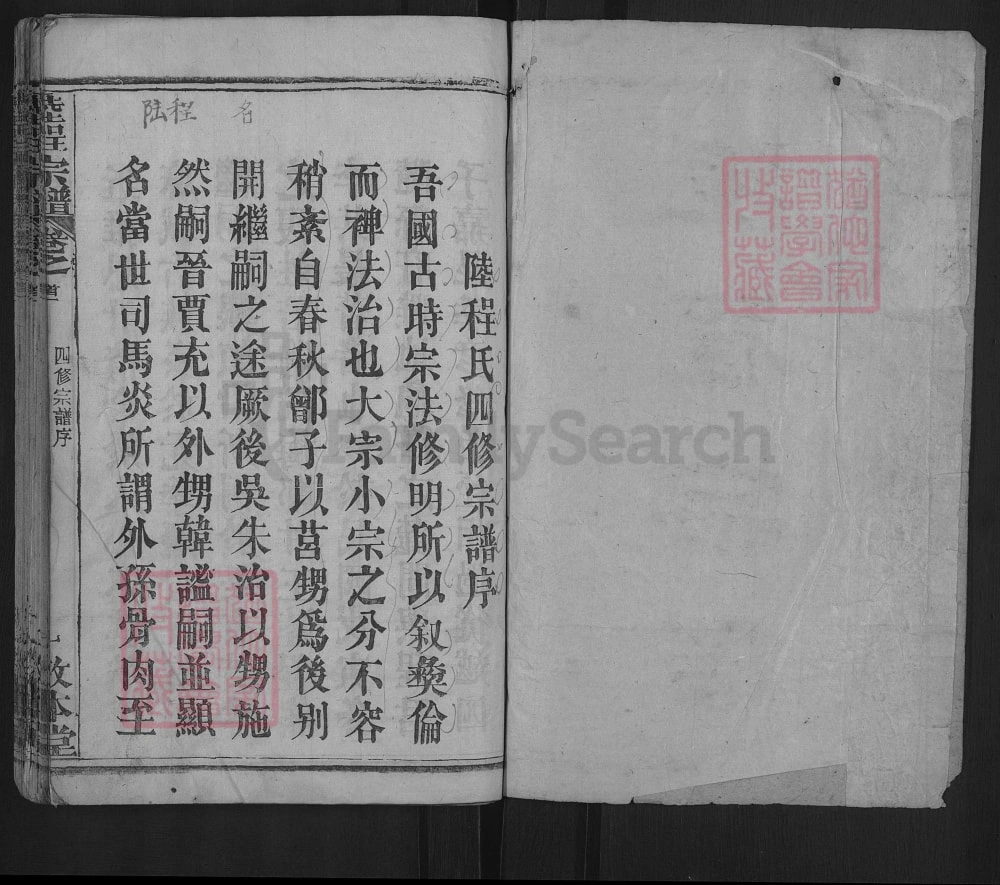 陸程氏四修宗譜序
吾國古時宗法修明所以叙彜倫
而禆法治也大宗小宗之分不容
稍紊自春秋鄫子以莒甥爲後别
開繼嗣之途厥後吳朱治以甥施
然嗣晉賈充以外甥韓謐嗣並顯
名當世司馬炎所謂外孫骨肉至
陆程 名
陸程宗譜
卷之首
四修宗譜序
敦本堂
譜學會
珍藏
FamilySearch